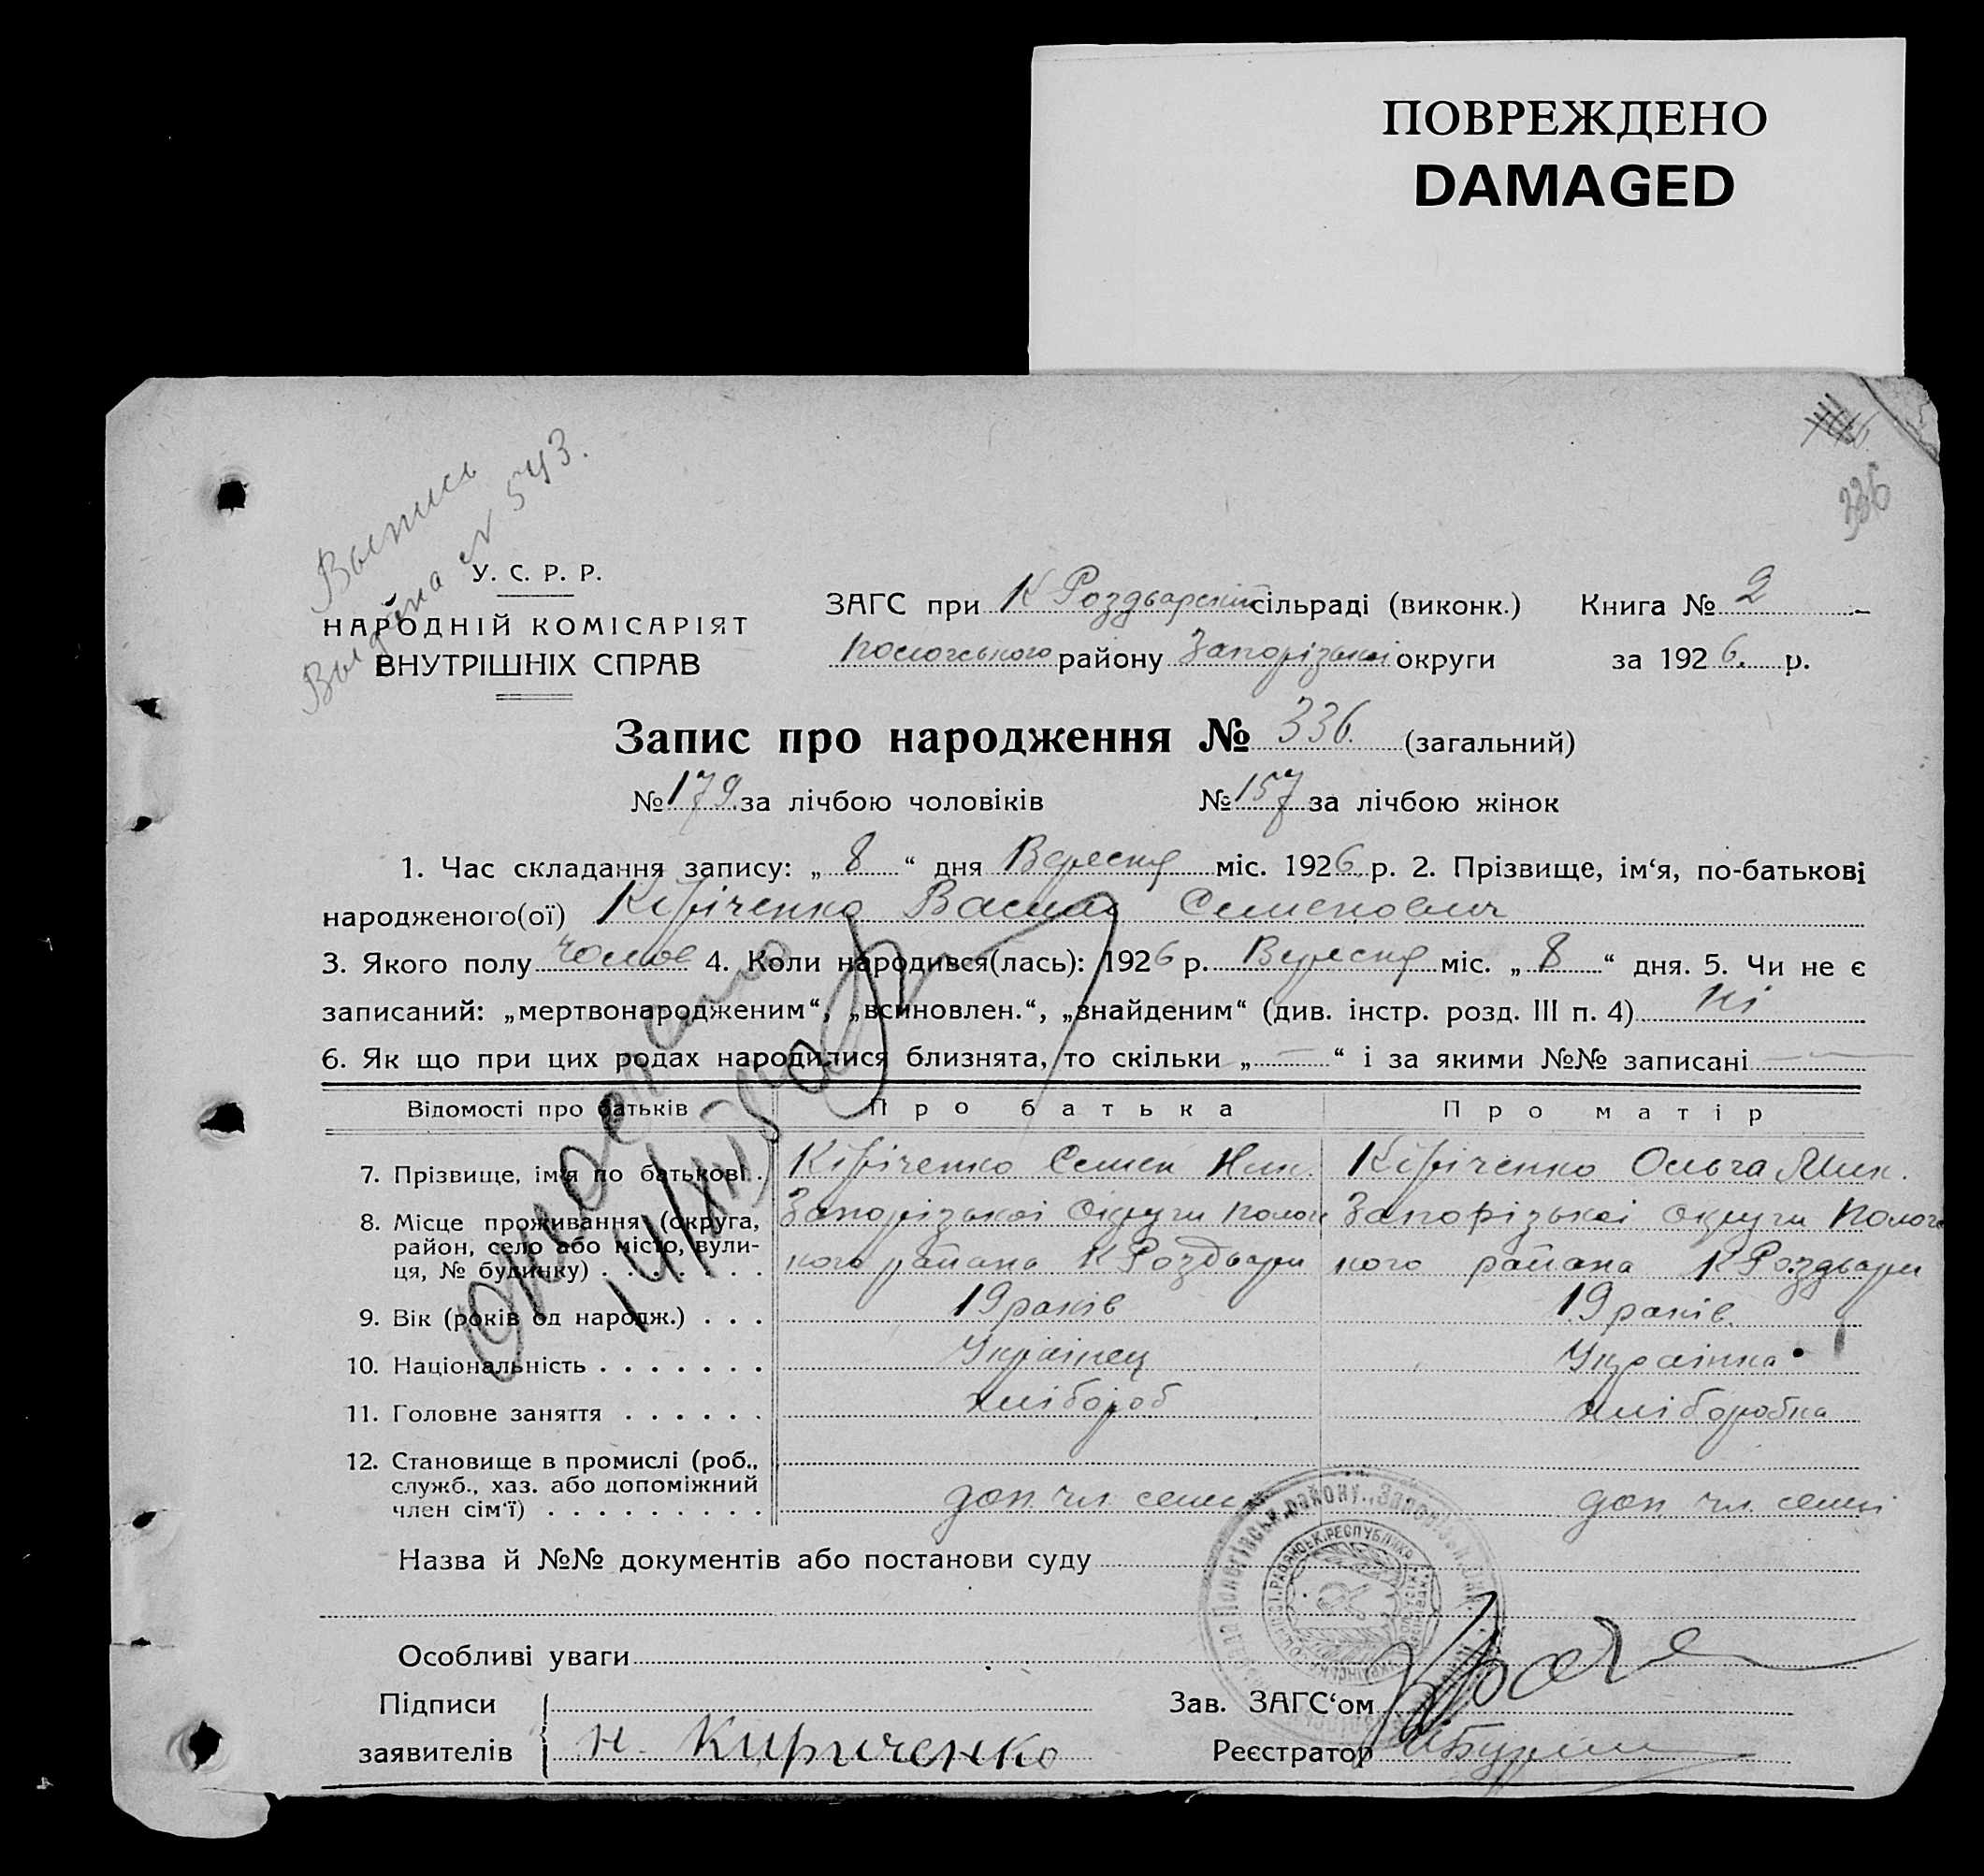 ПОВРЕЖДЕНО
DAMAGED
336
Выпись
Выдана № 543.
У. С. Р. Р.
НАРОДНІЙ КОМІСАРІЯТ
ВНУТРІШНІХ СПРАВ
ЗАГС при К Роздварский сільраді (виконк.) Книга № 2
Пологського району Запорізької округи за 1926. р.
Запис про народження № 336. (загальний)
№ 179. за лічбою чоловіків № 157 за лічбою жінок
1. Час складання запису: „ 8 “ дня Вересня міс. 1926 р. 2. Прізвище, ім‘я, по-батькові
народженого(ої) Кіріченко Василь Семенович
3. Якого полу чолов 4. Коли народився(лась): 1926 р. Вересня міс. „ 8 “ дня. 5. Чи не є
записаний: „мертвонародженим“, „всиновлен.“, „знайденим“ (див. інстр. розд. III п. 4) Ні
6. Як що при цих родах народилися близнята, то скільки „ — “ і за якими №№ записані —
Відомості про батьків Про батька Про матір
7. Прізвище, ім‘я по батькові . Кіріченко Семен Ник. Кіріченко Ольга Мик.
8. Місце проживання (округа, Запорізької Округи Полог Запорізької округи Полог
район, село або місто, вули- кого района К Роздвари кого района К Роздвари
ця, № будинку) . . . . . . .
9. Вік (років од народж.) . . . 19 років 19 років.
10. Національність . . . . . . . Українец Українка
11. Головне заняття . . . . . . хлібороб хліборобка
12. Становище в промислі (роб.,
служб., хаз. або допоміжний
член сім‘ї) . . . . . . . . . доп чл семі доп чл. семі
Назва й №№ документів або постанови суду
Особливі уваги
Підписи Зав. ЗАГС‘ом
заявителів Н. Кириченко Реєстратор